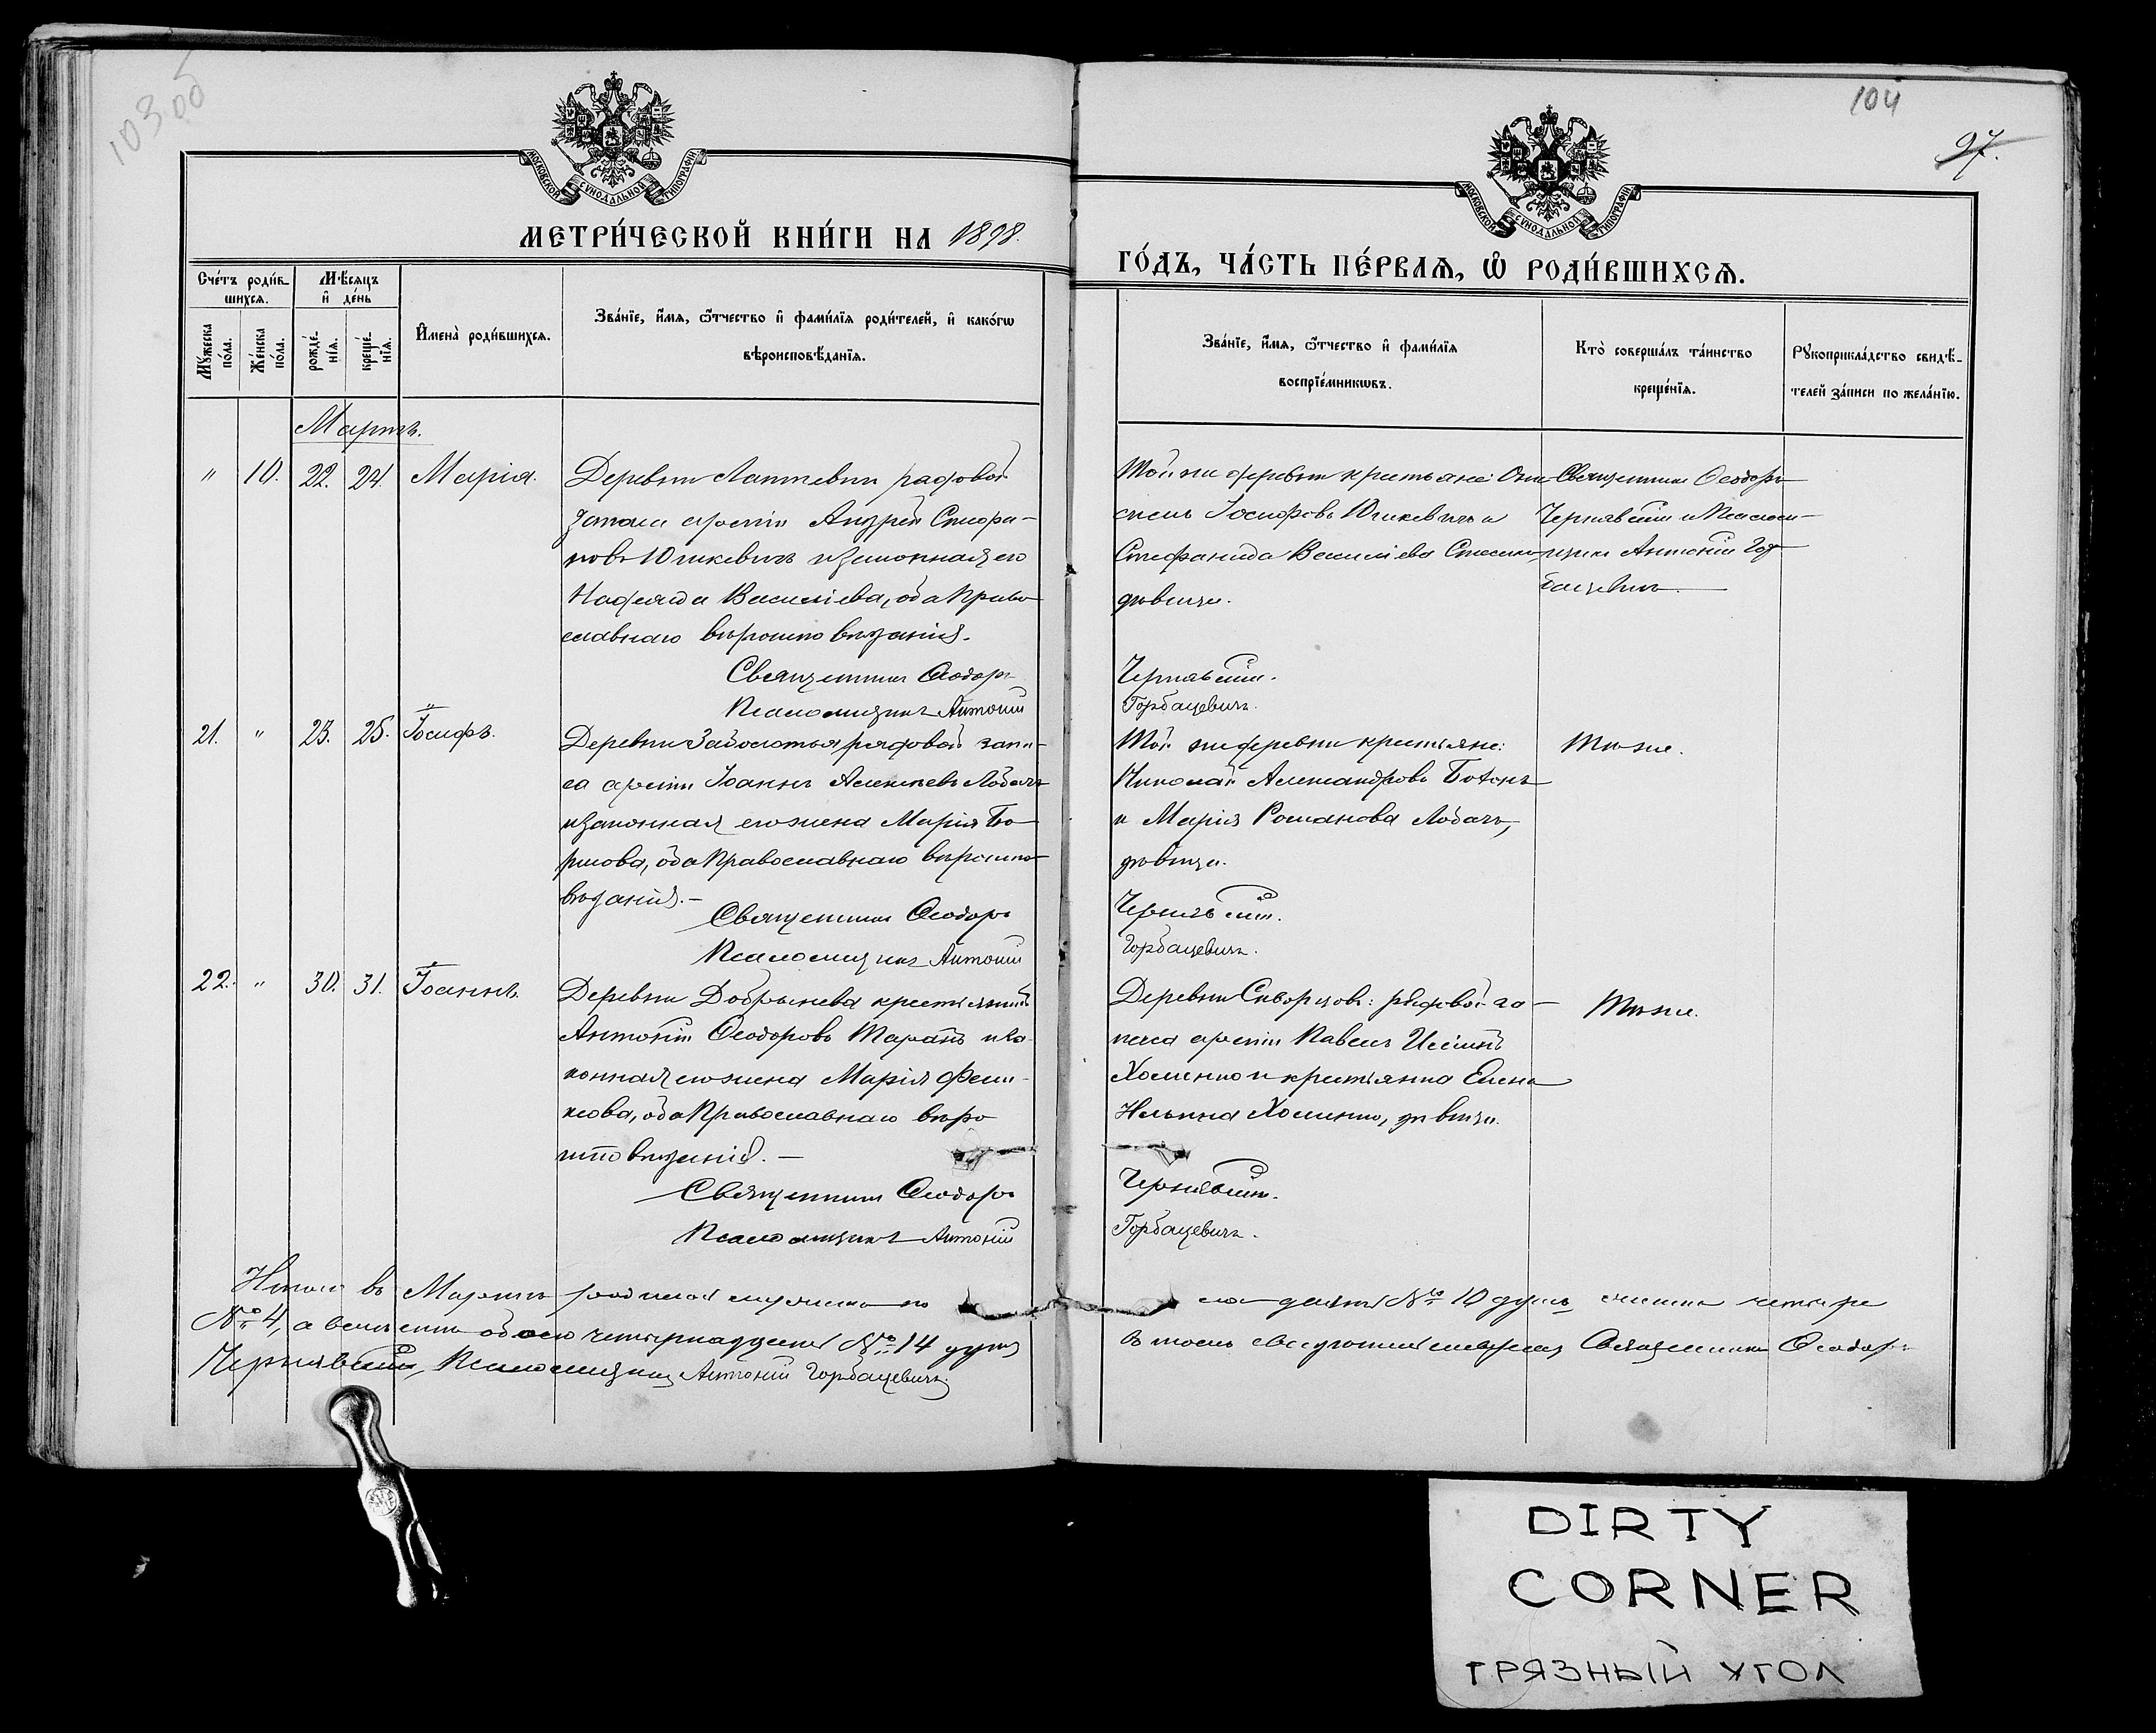 103 об
104
97.
МОСКОВСКОЙ СѴНОДАЛЬНОЙ ТИПОГРАФІИ
МОСКОВСКОЙ СѴНОДАЛЬНОЙ ТИПОГРАФІИ
МЕТРИ́ЧЕСКОЙ КНИ́ГИ НА 1898.
ГО́ДЪ, ЧА́СТЬ ПЕ́РВАѦ, Ѡ҆ РОДИ́ВШИХСѦ.
Сче́тъ роди́в-
шихсѧ.
Мѣ́сѧцъ
и҆ де́нь
Мꙋ́жеска
по́ла.
Же́нска
по́ла.
рожде́-
нїѧ.
креще́-
нїѧ.
И҆мена̀ роди́вшихсѧ.
Зва́нїе, и҆́мѧ, ѻ҆́тчество и҆ фами́лїѧ роди́телей, и҆ како́гѡ
вѣроисповѣ́данїѧ.
Зва́нїе, и҆́мѧ, ѻ҆́тчество и҆ фами́лїѧ
воспрїе́мникѡвъ.
Кто̀ соверша́лъ та́инство
креще́нїѧ.
Рꙋкоприкла́дство свидѣ́-
телей за́писи по жела́нїю.
Мартъ.
" 10. 22. 24. Марія.
Деревни рядовой
запаса арміи Андрей Стефа-
новъ Юшкевичъ и законная его
Надежда Василіева, оба Право
славнаго вѣроисповѣданія.
Священникъ Ѳеодоръ
Псаломщикъ Антоній
Той же деревни крестьяне:
Іосифовъ Юшкевичъ и
Стефанида Василіева
дѣвица.
Чернявскій.
Горбацевичъ.
Священникъ Ѳеодоръ
Чернявскій и Псалом-
щикъ Антоній Гор
бацевичъ.
21. " 23. 25. Іосифъ.
Деревни Заболотья рядовой запа-
са арміи Іоаннъ Алексѣевъ Лобачъ
и законная его жена Марія Бо-
рисова, оба Православнаго вѣроиспо-
вѣданія.-
Священникъ Ѳеодоръ
Псаломщикъ Антоній
Той же деревни крестьяне:
Николай Александровъ
и Марія Романова Лобачъ,
дѣвица.
Чернявскій.
Горбацевичъ.
Тѣ же.
22. " 30. 31. Іоаннъ.
Деревни Добрынева крестьянинъ
Антоній Ѳеодоровъ и за
конная его жена Марія
оба Православнаго вѣро
исповѣданія.-
Священникъ Ѳеодоръ
Псаломщикъ Антоній
Деревни рядовой за-
паса арміи Павелъ
Хоменко и крестьянка Елена
Ильина Хоменко, дѣвица.
Чернявскій.
Горбацевичъ.
Тѣ же.
Итого въ Мартѣ родилось мужеска по
ла десять № 10 душъ, женска четыре
№ 4, а всего обоего четырнадцать № 14 душъ
Въ томъ Священникъ Ѳеодоръ
Чернявскій, Псаломщикъ Антоній Горбацевичъ.
DIRTY
CORNER
ГРЯЗНЫЙ УГОЛ